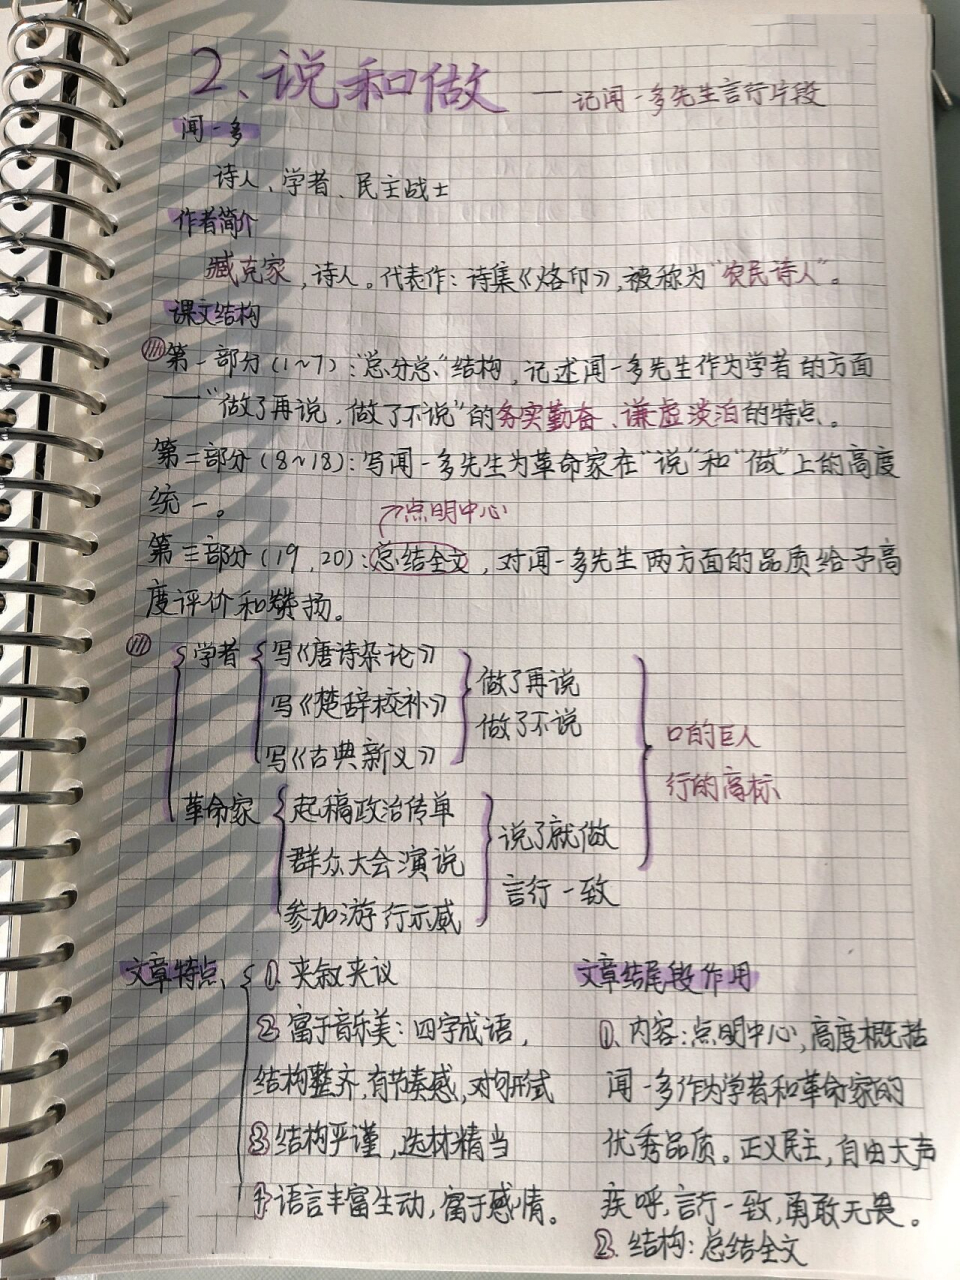 2、说和做 — 记闻一多先生言行片段
闻一多
诗人、学者、民主战士
作者简介
臧克家，诗人。代表作：诗集《烙印》，被称为“农民诗人”。
课文结构
第一部分（1~7）：“总分总”结构，记述闻一多先生作为学者的方面
——“做了再说，做了不说”的务实勤奋、谦虚淡泊的特点。
第二部分（8~18）：写闻一多先生为革命家在“说”和“做”上的高度
统一。
→点明中心
第三部分（19、20）：总结全文，对闻一多先生两方面的品质给予高
度评价和赞扬。
学者
写《唐诗杂论》
写《楚辞校补》
写《古典新义》
做了再说
做了不说
革命家
起稿政治传单
群众大会演说
参加游行示威
说了就做
言行一致
口的巨人
行的高标
文章特点
①夹叙夹议
②富于音乐美：四字成语，
结构整齐，有节奏感，对句形式
③结构严谨，选材精当
④语言丰富生动，富于感情。
文章结尾段作用
①内容：点明中心，高度概括
闻一多作为学者和革命家的
优秀品质。正义民主，自由大声
疾呼，言行一致，勇敢无畏。
②结构：总结全文